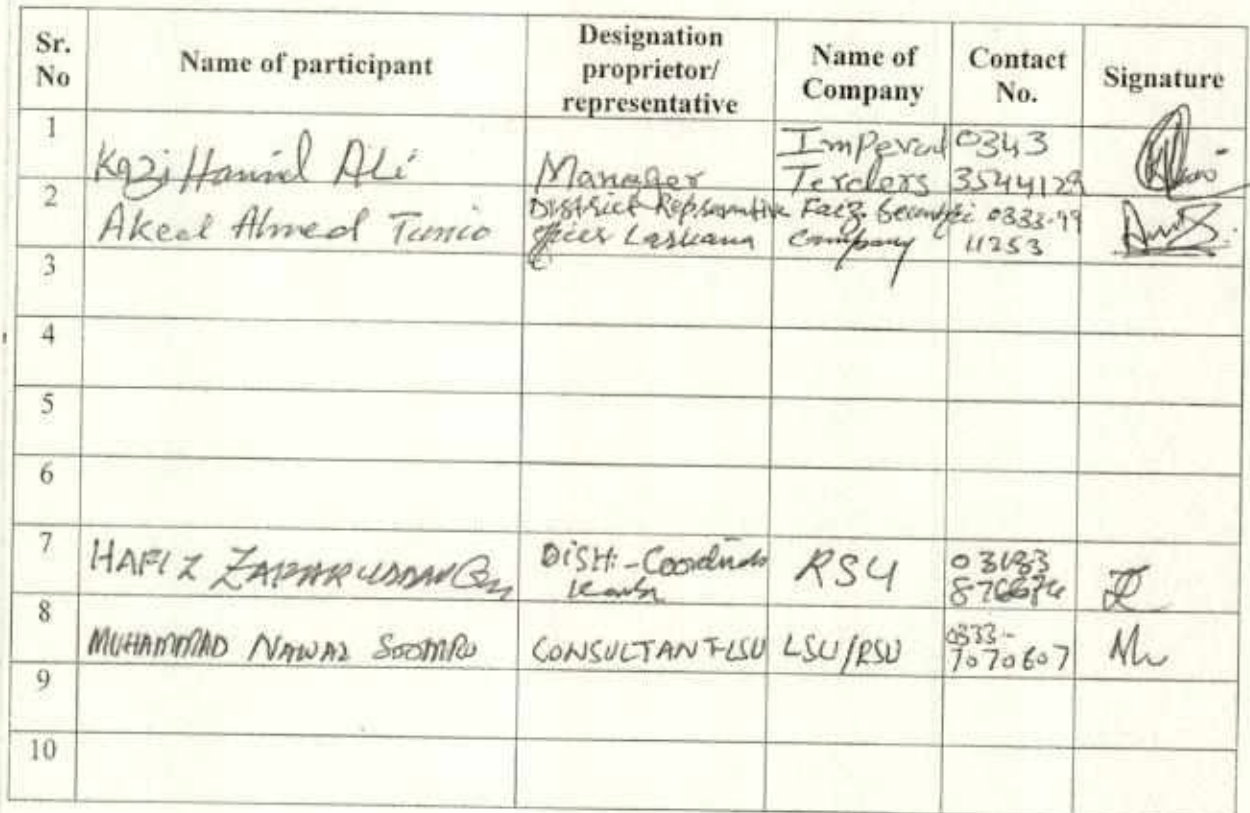 Sr. No Name of participant Designation proprietor/ representative Name of Company Contact No. Signature
1 Kazi Hamid Ali Manager Imperal Terders 0343 3544129
2 Akeel Ahmed Tunio District Office Larkana Company 0333-99 11253
3
4
5
6
7 HAFIZ DISH:-Coordinator RSU
8 MUHAMMAD NAWAZ SOOMRO CONSULTANT-LSU LSU/RSU 0333- 7070607
9
10